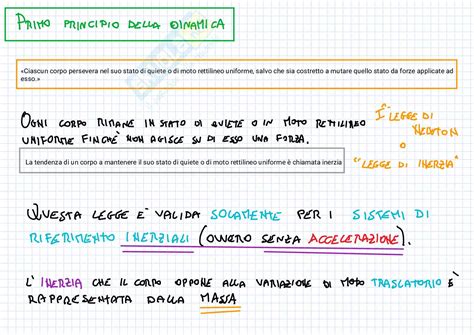 PRIMO PRINCIPIO DELLA DINAMICA
«Ciascun corpo persevera nel suo stato di quiete o di moto rettilineo uniforme, salvo che sia costretto a mutare quello stato da forze applicate ad
esso.»
OGNI CORPO RIMANE IN STATO DI QUIETE O IN MOTO RETTILINEO
UNIFORME FINCHÈ NON AGISCE SU DI ESSO UNA FORZA.
La tendenza di un corpo a mantenere il suo stato di quiete o di moto rettilineo uniforme è chiamata inerzia
I° LEGGE DI
NEWTON
O
"LEGGE DI INERZIA"
QUESTA LEGGE E' VALIDA SOLAMENTE PER I SISTEMI DI
RIFERIMENTO INERZIALI (OVVERO SENZA ACCELERAZIONE).
L' INERZIA CHE IL CORPO OPPONE ALLA VARIAZIONE DI MOTO TRASLATORIO È
RAPPRESENTATA DALLA MASSA